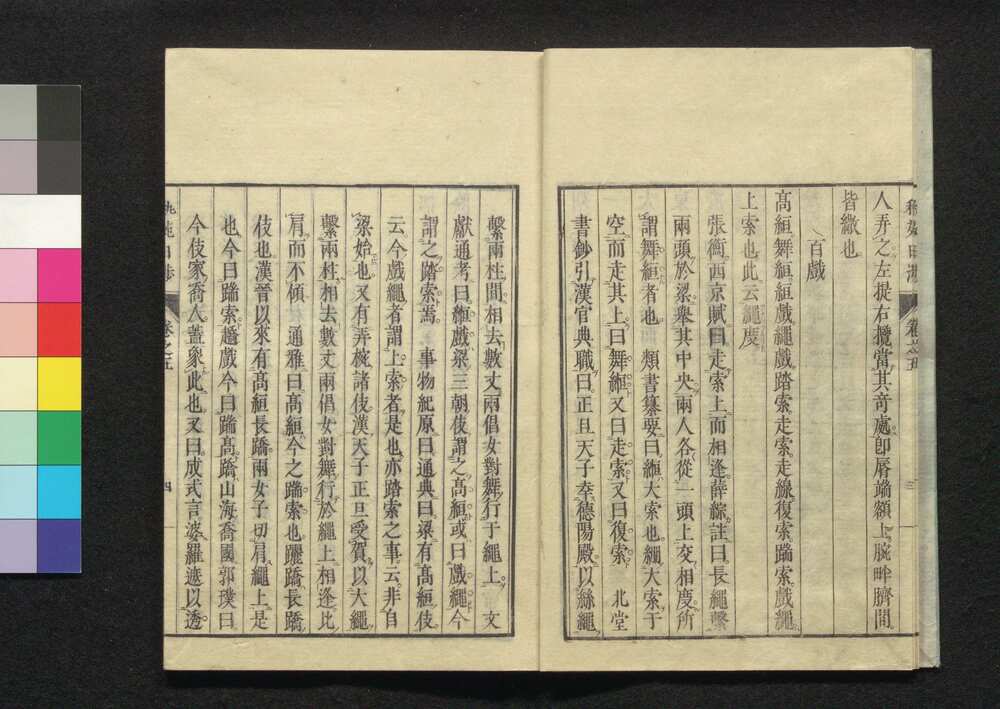 人弄之左提右攬當其竒處即唇端額上腕畔臍間
皆繳也
百戲
高絙舞絙絙戲繩戲踏索走索走線復索踹索戲繩
上索也此云繩慶
張衡西京賦曰走索上而相逢薛綜註曰長繩繫
兩頭於梁舉其中央兩人各從一頭上交相度所
謂舞絙者也 類書纂要曰絙大索也緪大索于
空而走其上曰舞絙又曰走索又曰復索 北堂
書鈔引漢官典職曰正旦天子幸德陽殿以絲繩
繫兩柱間相去數丈兩倡女對舞行于繩上 文
獻通考曰絙戲梁三朝伎謂之高絙或曰戲繩今
謂之踏索焉 事物紀原曰通典曰梁有高絙伎
云今戲繩者謂上索者是也亦踏索之事云非自
梁始也又有弄椀諸伎漢天子正旦受賀以大繩
繫兩柱相去數丈兩倡女對舞行於繩上相逢比
肩而不傾 通雅曰高絙今之踹索也躧蹻長蹻
伎也漢晉以來有高絙長蹻兩女子切肩繩上是
也今曰踹索趫戲今曰踹高蹻山海喬國郭璞曰
今伎家喬人蓋象此也又曰成式言婆羅遮以透
卷之五
四